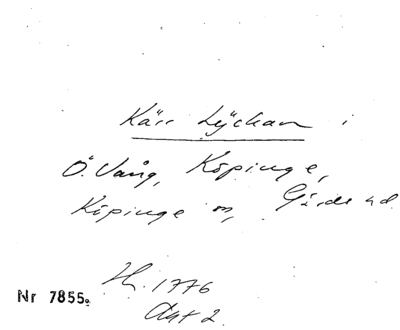 Kärr Lyckan i
Ö. Vång, Köpinge,
Köpinge sn, Gärds hd
H. 1776
Akt 2.
Nr 7855.